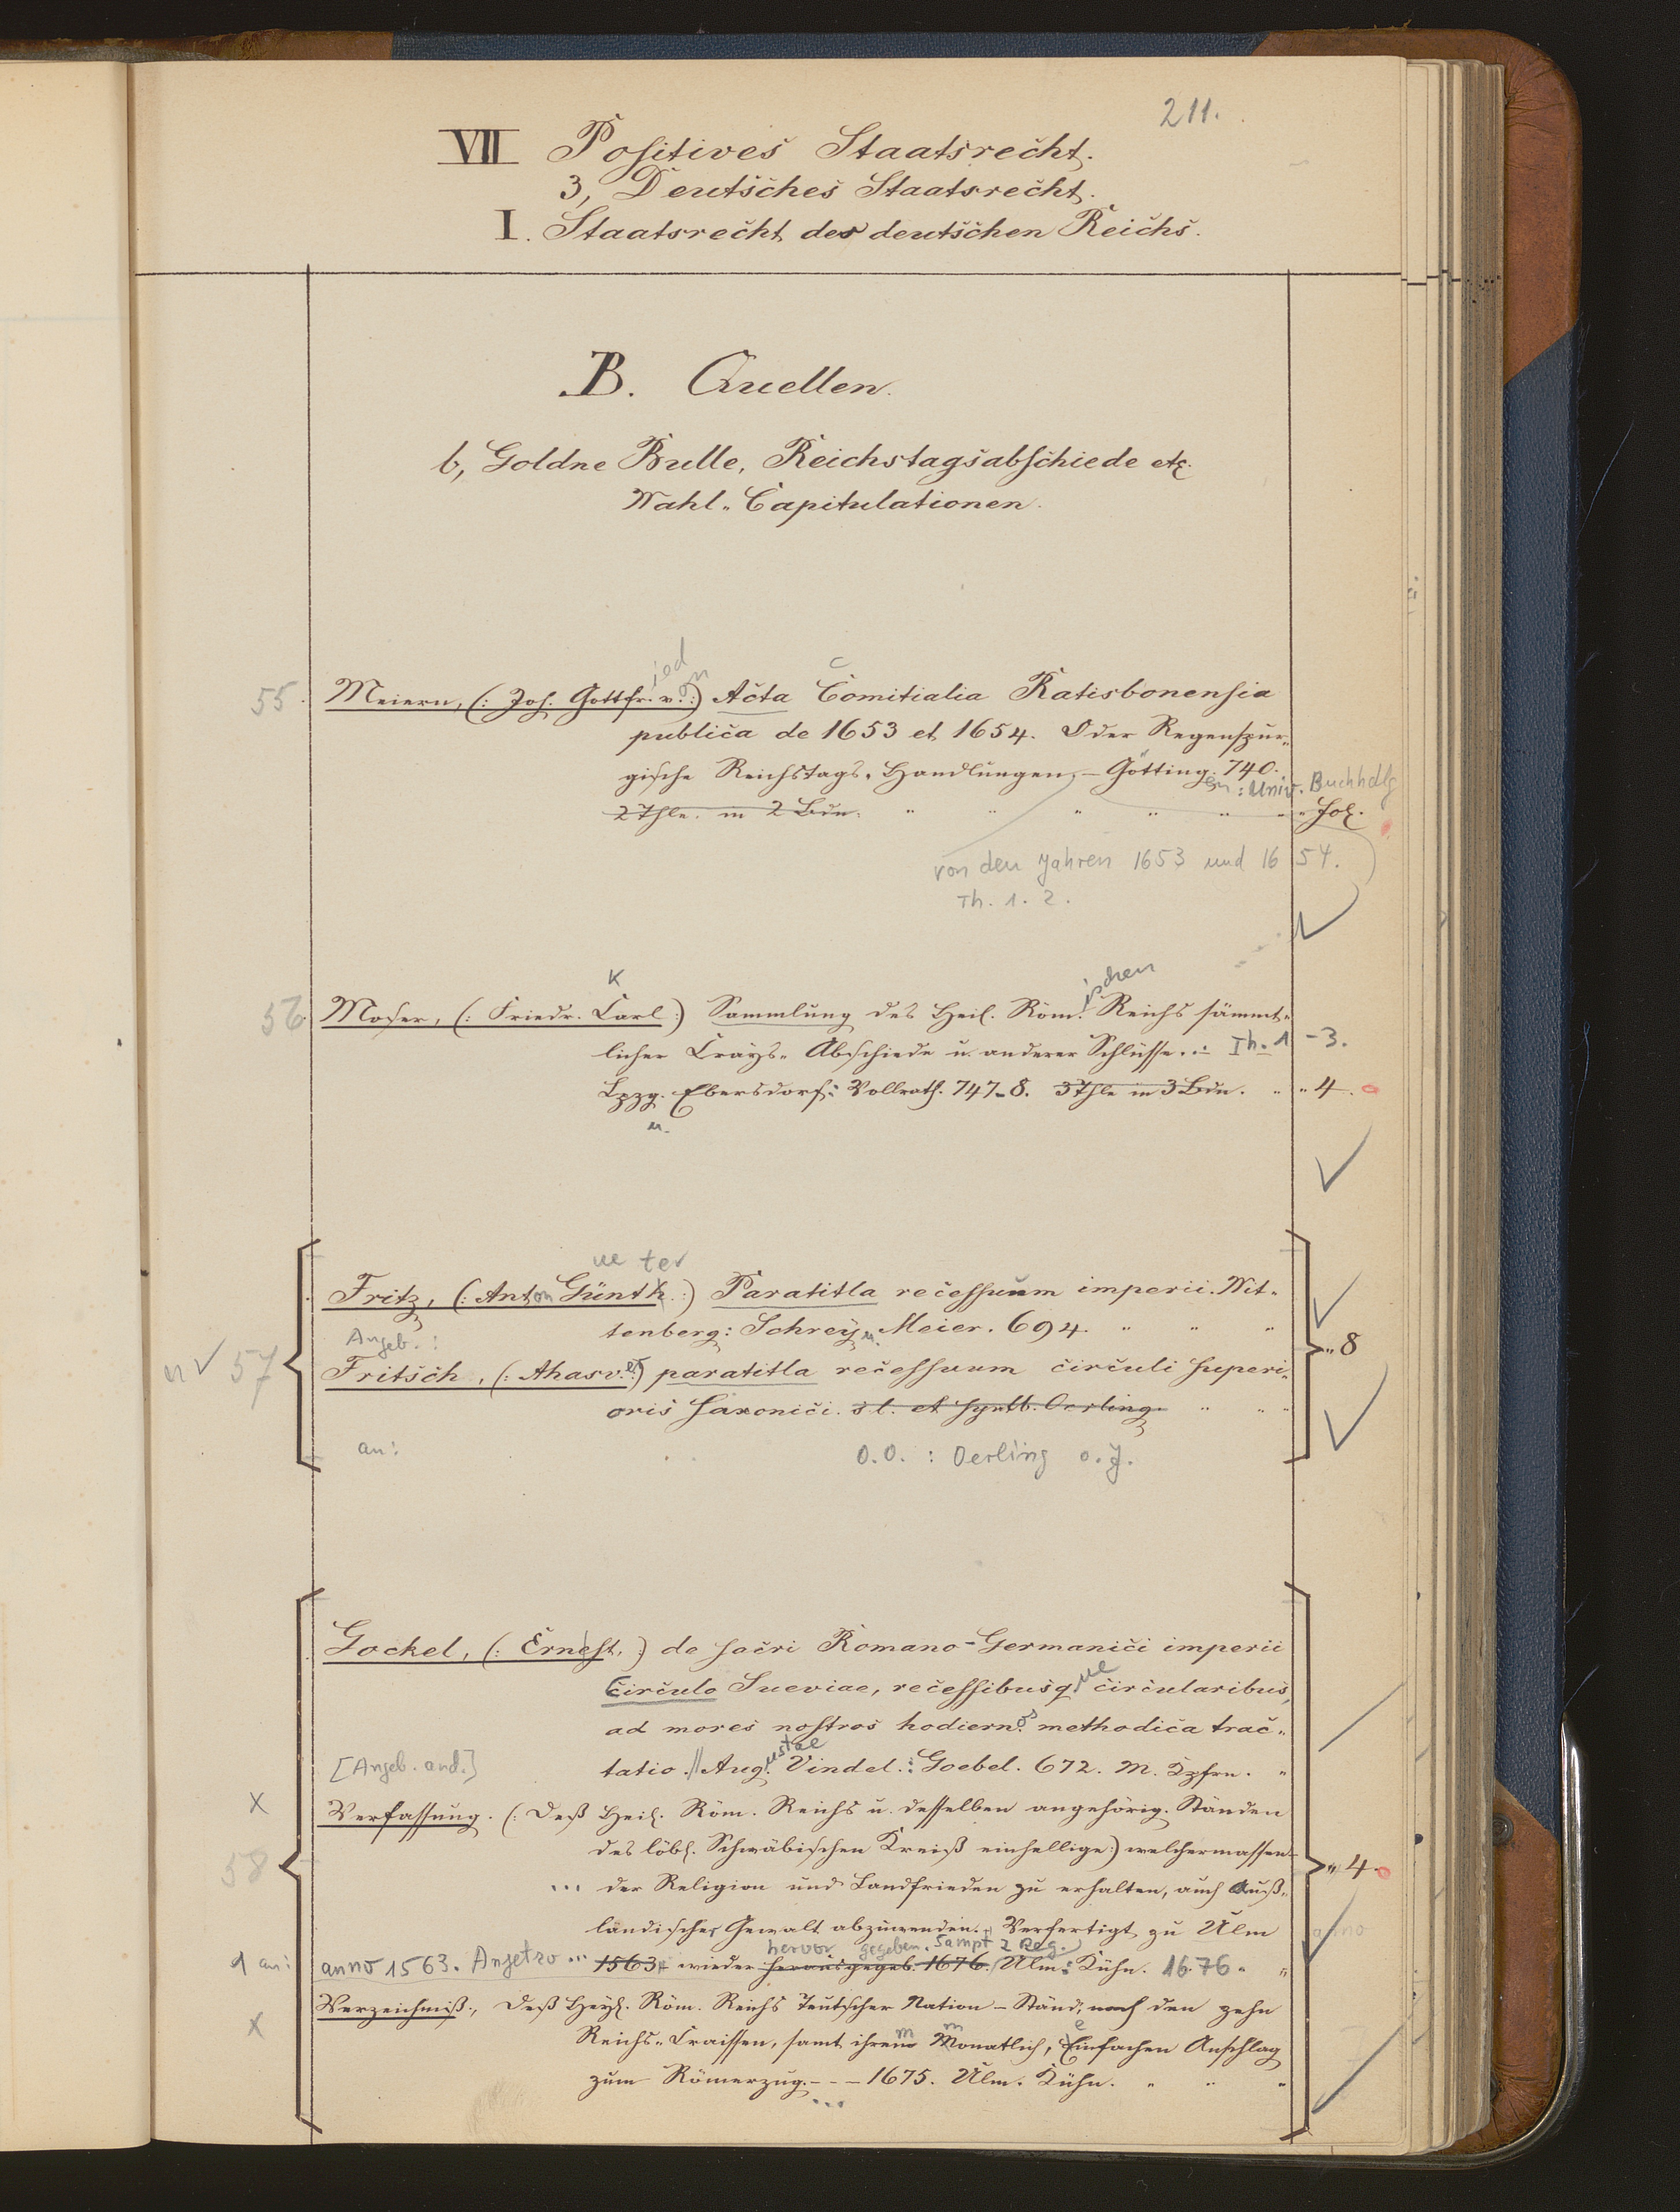 211.
VII Positives Staatsrecht.
3, Deutsches Staatsrecht.
I. Staatsrecht des deutschen Reichs.
B. Quellen.
b, Goldne Bulle, Reichstagsabschiede etc.
Wahl-Capitulationen.
ied on C
55. Meiern, (: Joh. Gottfr. v. :) Acta Comitialia Ratisbonensia
publica de 1653 et 1654. Oder Regenspur-
gische Reichstags-Handlungen, - Götting. 740.
en : Univ. Buchhdlg
2 Thle. in 2 Bdn. " " " " " " Fol.
von den Jahren 1653 und 1654.
Th. 1. 2.
K ischen
56. Moser, (: Friedr. Carl :) Sammlung des Heil. Röm. Reichs sämmt-
licher Crays-Abschiede u. anderer Schlüsse... Th. 1 - 3.
Lpzg. Ebersdorf: Vollrath. 747-8. 3 Thle in 3 Bdn. " " 4.
u.
ue ter
Fritz, (: Anton Günth. :) Paratitla recessuum imperii. Wit-
tenberg: Schrey u. Meier. 694. " " "
Angeb.:
n ✓ 57 Fritsch, (: Ahasv. :) paratitla recessuum circuli superi-
" 8
oris saxonici. s l. et Oerling. " " "
an: O.O. : Oerling o. J.
Gockel, (: Ernest. :) de sacri Romano-Germanici imperii
Circulo Sueviae, recessibusq ue circularibus,
ad mores nostros hodiern. os methodica trac-
tatio. // Aug. ustae Vindel.: Goebel. 672. M. Kpfrn. "
[Angeb. and.]
x Verfassung. (: Deß Heil. Röm. Reichs u. desselben angehörig. Ständen
des löbl. Schwäbischen Kreiß einhellige :) welchermassen
58 ... der Religion und Landfrieden zu erhalten, auch Auß-
" 4.
ländischer Gewalt abzuwenden. Verfertigt zu Ulm
hervor gegeben. Sampt 2 Reg.
1 an: anno 1563. Anjetzo ... 1563 wieder herausgegeb. 1676. Ulm: Kühn. 1676 " "
Verzeichniß:, Deß Heyl. Röm. Reichs Teutscher Nation - Ständ, nach den zehn
x Reichs-Craissen, samt ihrem Monatlich, Einfachen Anschlag
zum Römerzug. - - - 1675. Ulm. Kühn. " " "
...